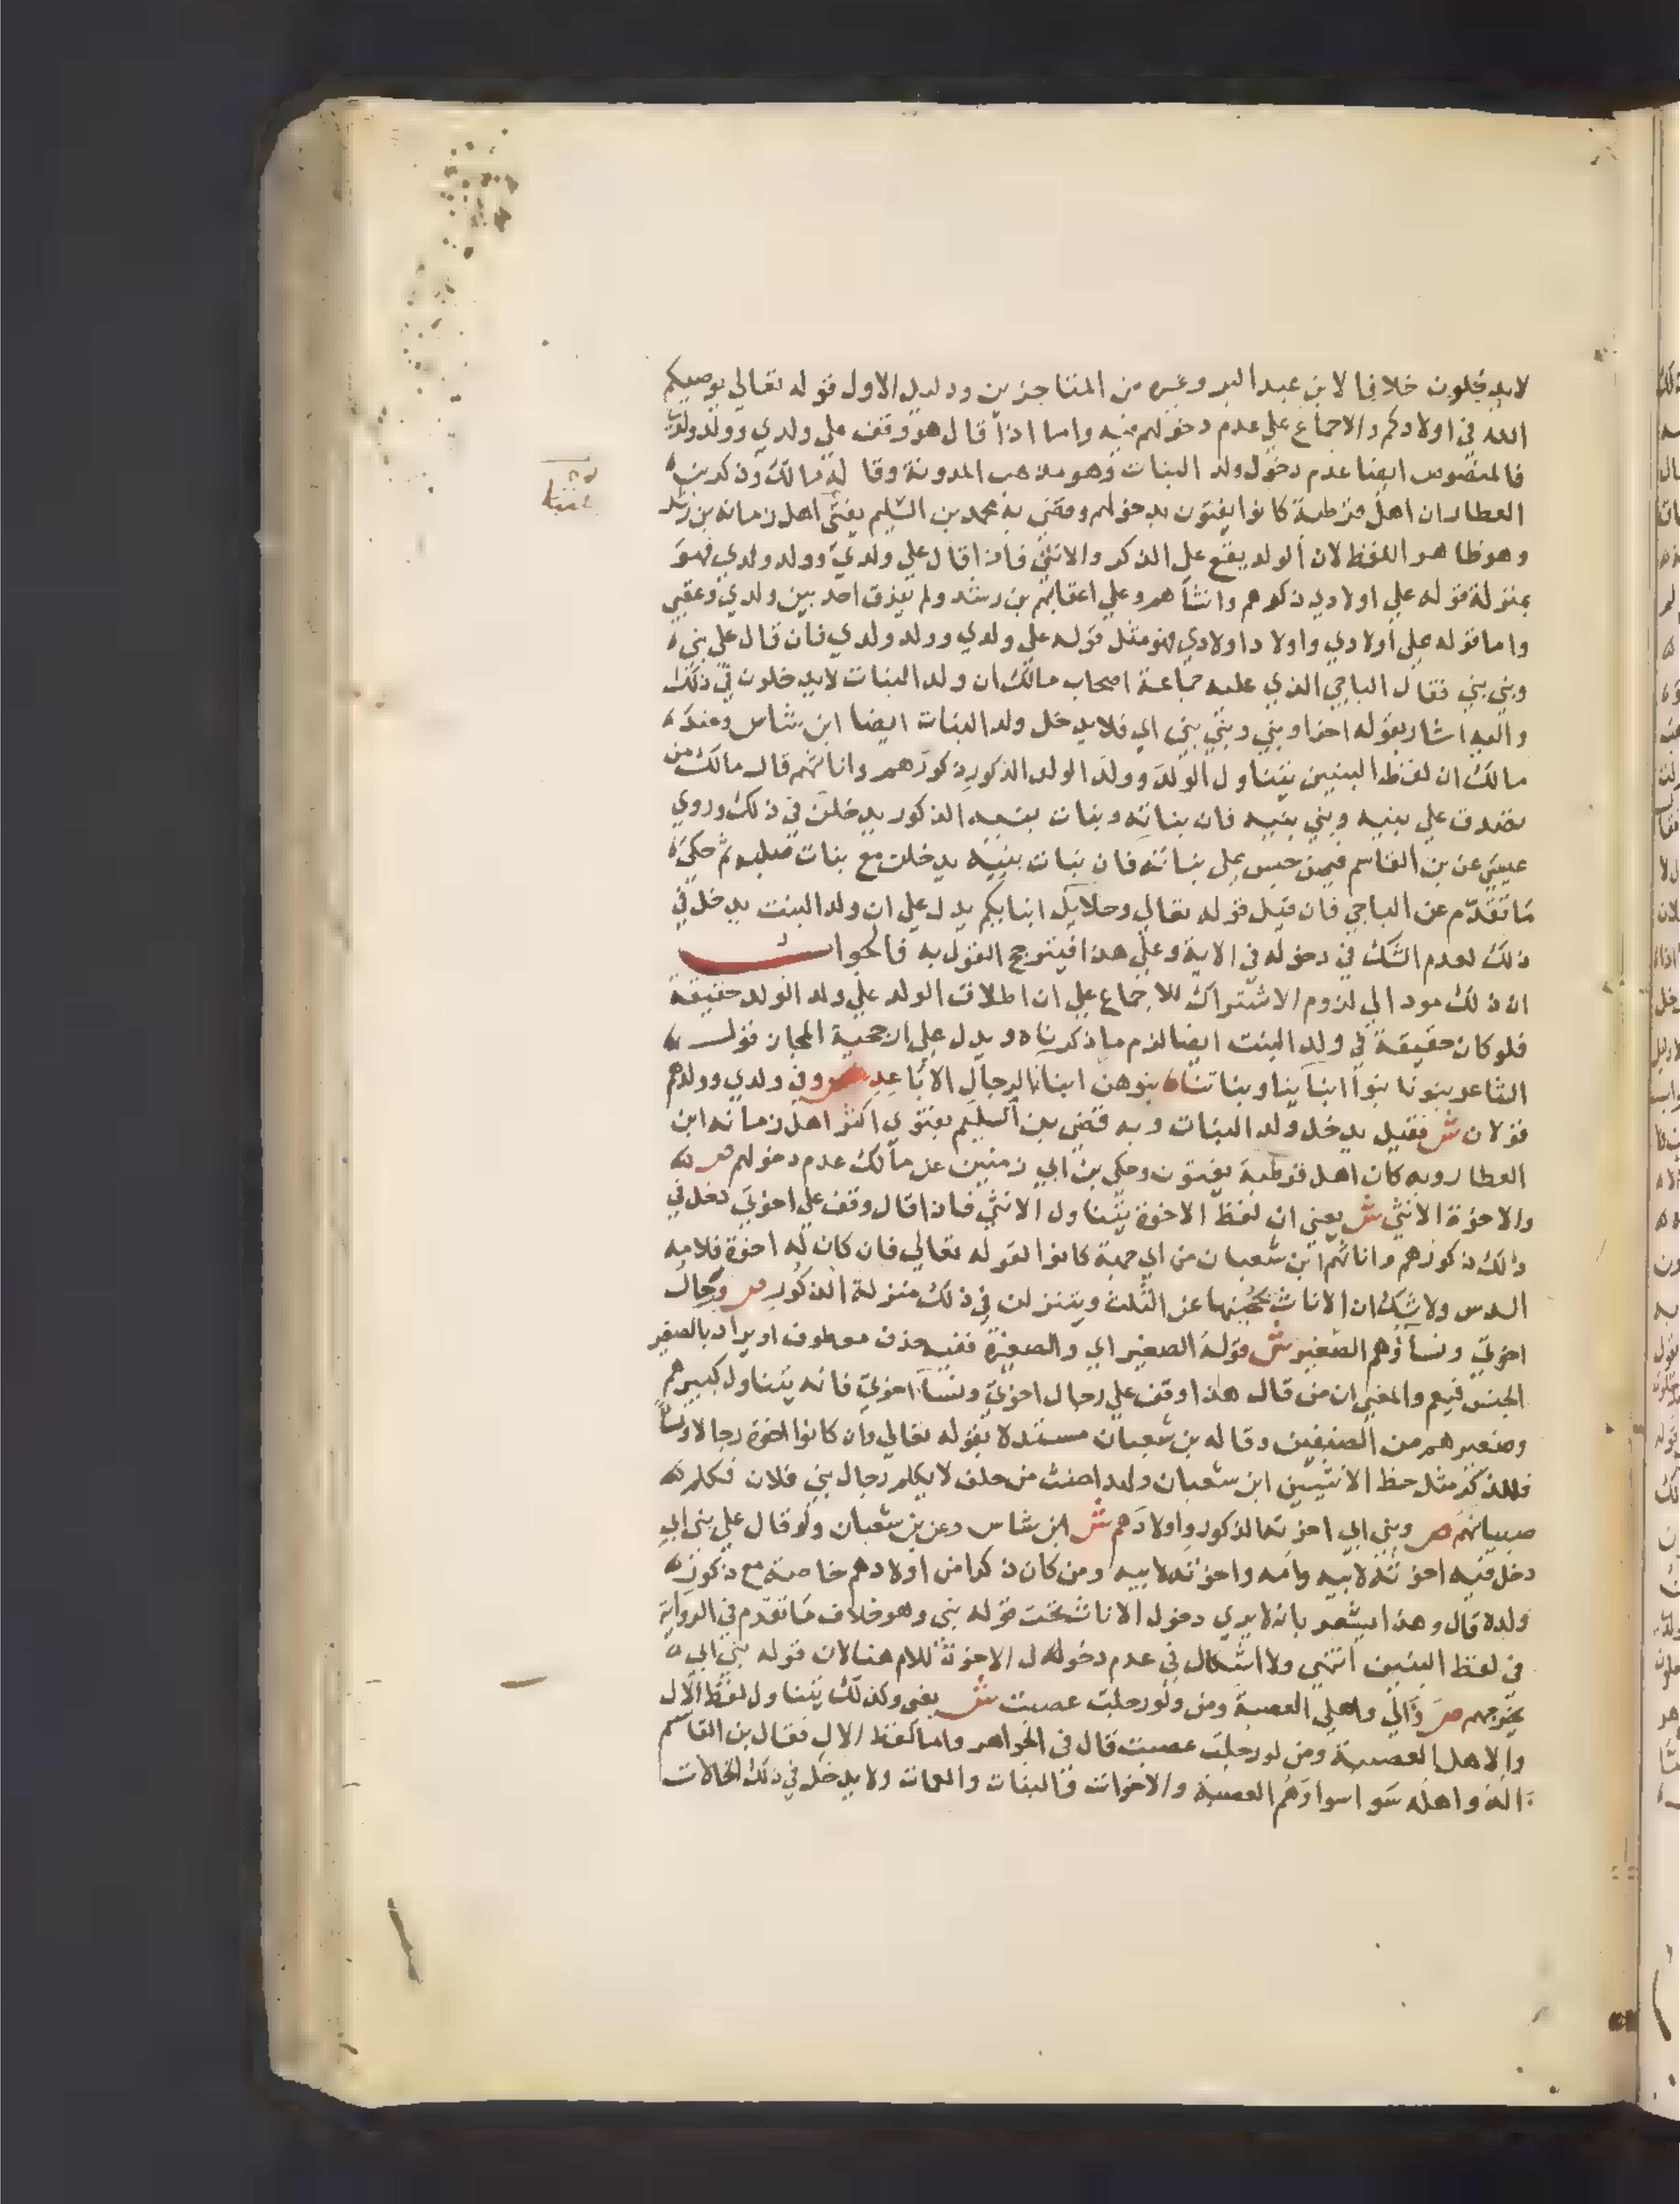 لا يدخلون خلافا لابن عبد البر وغيره من المتاخرين ودليل الاول قوله تعالي يوصيكم
الله في اولادكم والاجماع علي عدم دخولهم فيه واما اذا قال هو وقف علي ولدي وولد ولدي
فالمنصوص ايضا عدم دخول ولد البنات وهو مذهب المدونة وقاله مالك وذكر بن
العطار ان اهل قرطبة كانوا يفتون بدخولهم وقضي به محمد بن السليم بفتي اهل زمانه بن رشد
وهو ظاهر اللفظ لان الولد يقع علي الذكر والانثي فاذا قال علي ولدي وولد ولدي فهو
بمنزلة قوله علي اولادي ذكرهم وانثاهم وعلي اعقابهم بن رشد ولم يفرق احد بين ولدي وعقبي
واما قوله علي اولادي واولاد اولادي فهو مثل قوله علي ولدي وولد ولدي فان قال علي بني
وبني بني فقال الباجي الذي عليه جماعة اصحاب مالك ان ولد البنات لا يدخلون في ذلك
واليه اشار بقوله اخرا وبني وبني بني اي فلا يدخل ولد البنات ايضا ابن شاس وعند
مالك ان لفظ البنين يتناول الولد وولد الولد الذكور ذكورهم واناثهم قال مالك من
تصدق علي بنيه وبني بنيه فان بناته وبنات بنيه الذكور يدخلن في ذلك وروي
عيسي عن بن القاسم فيمن حبس علي بناته فان بنات بنيه يدخلن مع بنات صلبه ثم حكي
ما تقدم عن الباجي فان قيل قوله تعالي وحلايل ابنايكم يدل علي ان ولد البنت يدخل في
ذلك لعدم الشك في دخوله في الاية وعلي هذا فيترجح القول به فالجواب
ان ذلك مود الي لزوم الاشتراك للاجماع علي ان اطلاق الولد علي ولد الولد حقيقة
فلو كان حقيقة في ولد البنت ايضا لزم ما ذكرناه ويدل علي ارجحية المجاز قول
الشاعر بنونا بنوا ابنآينا وبناتنا بنوهن ابنا الرجال الاباعد ص وفي ولدي وولدهم
قولان ش فقيل يدخل ولد البنات وبه قضي بن السليم بفتوي اكثر اهل زمانه ابن
العطار وبه كان اهل قرطبة يفتون وحكي بن ابي زمنين عن مالك عدم دخولهم ص
والاخوة الانثي ش يعني ان لفظ الاخوة يتناول الانثي فاذا قال وقف علي اخوتي دخل في
ذلك ذكورهم واناثهم ابن شعبان من اي جهة كانوا لقوله تعالي فان كان له اخوة فلامه
السدس ولا شك ان الاناث يحجبنها عن الثلث ويتنزلن في ذلك منزلة الذكور ص ورجال
اخوتي ونساؤهم الصغير ش قوله الصغير اي والصغيرة ففيه حذف معطوف او يراد بالصغير
الجنس فيعم والمعني ان من قال هذا وقف علي رجال اخوتي ونسآ اخوتي فانه يتناول كبيرهم
وصغيرهم من الصنفين وقاله بن شعبان مستدلا بقوله تعالي وان كانوا اخوة رجالا ونسآ
فللذكر مثل حظ الانثيين ابن شعبان ولهذا حنث من حلف لا يكلم رجال بني فلان فكلم
صبيانهم ص وبني ابي اخوته الذكور واولادهم ش ابن شاس وعن بن شعبان ولو قال علي بني ابي
دخل فيه اخوته لابيه وامه واخوته لابيه ومن كان ذكرا من اولادهم خاصة مع ذكور
ولده قال وهذا يشعر بانه لا يري دخول الاناث تحت قوله بني وهو خلاف ما تقدم في الرواية
في لفظ البنين انتهي ولا اشكال في عدم دخول الاخوة للام هنا لان قوله بني ابي
يخرجهم ص وآلي واهلي العصبة ومن ولو رجلت عصبت ش يعني وكذلك يتناول لفظ الآل
والاهل العصبة ومن لو رجلت عصبت قال في الجواهر واما لفظ الال فقال بن القاسم
اله واهله سوا وهم العصبة والاخوات والبنات والعمات ولا يدخل في ذلك الخالات